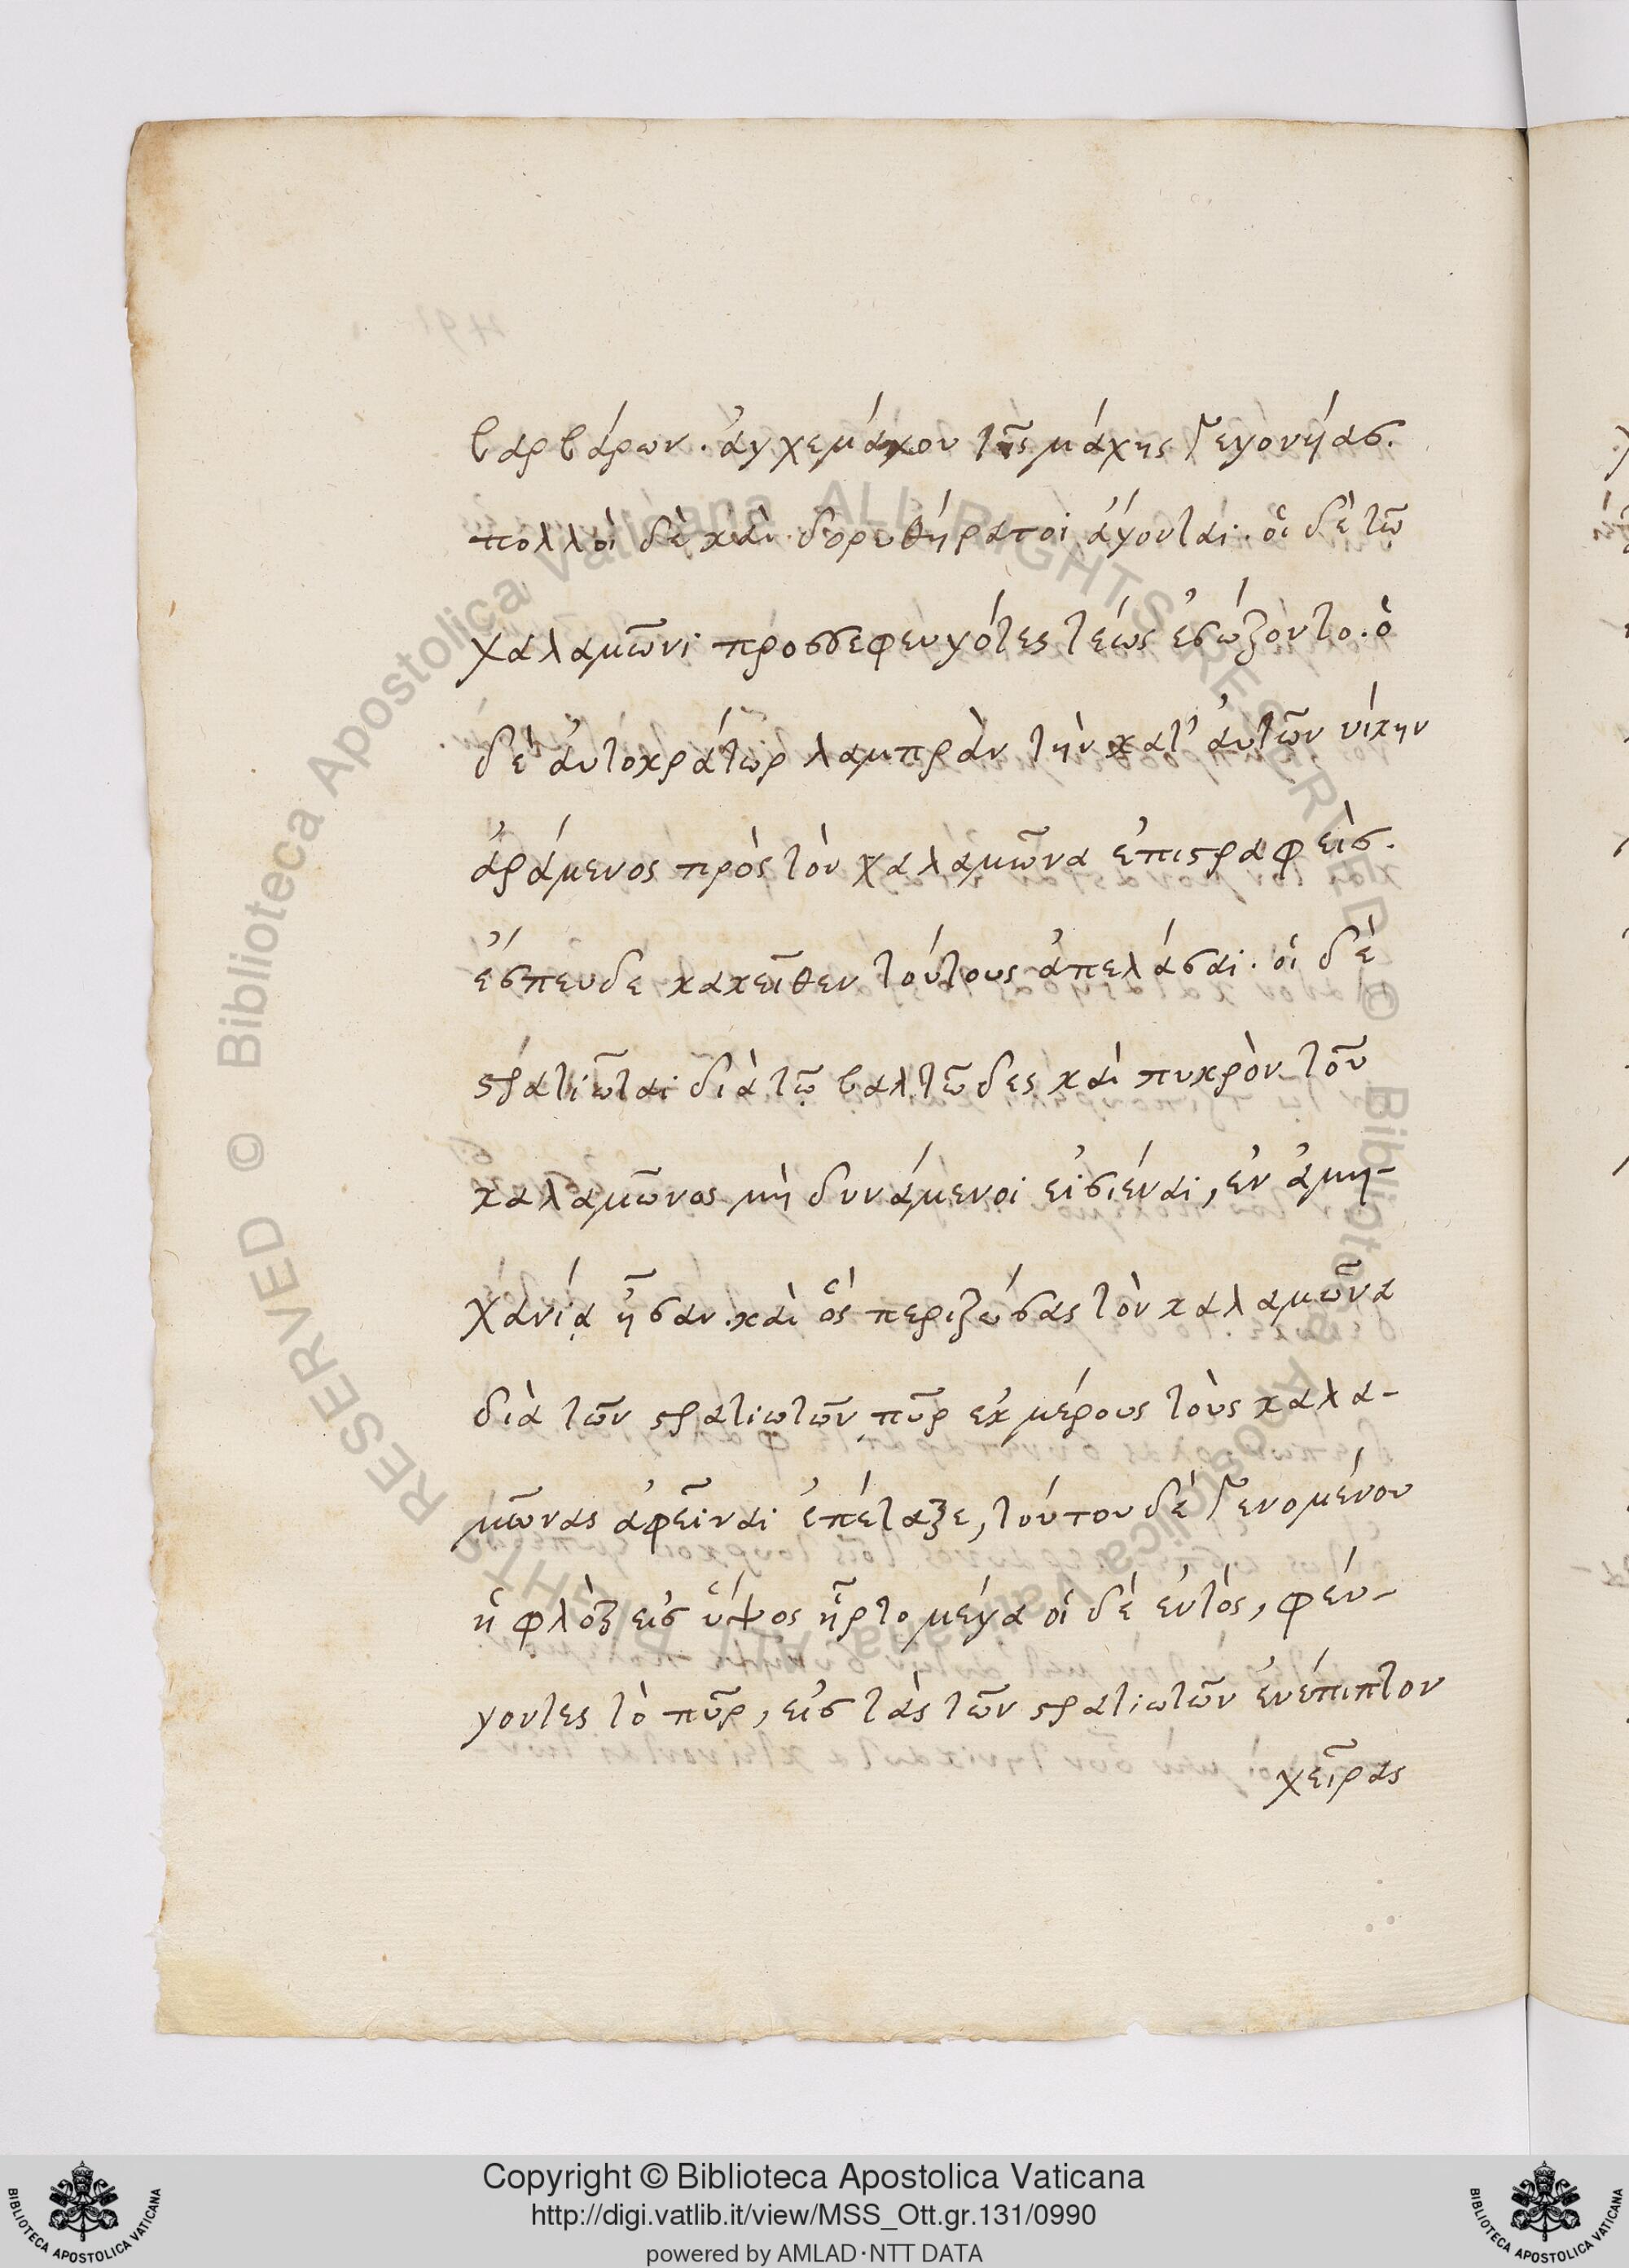 βαρβάρων. ἀγχεμάχου τῆς μάχης γεγονήας.
πολλοὶ δὲ καὶ δορυθήρατοι ἄγονται. οἱ δὲ τῷ
καλαμῶνι προσπεφευγότες τέως ἐσώζοντο. ὁ
δὲ ἀυτοκράτωρ λαμπρὰν τὴν κατ' ἀυτῶν νίκην
ἀράμενος πρὸς τὸν καλαμῶνα ἐπιστραφεὶς.
ἔσπευδε κακεῖθεν τούτους ἀπελάσαι. οἱ δὲ
στρατιῶται διὰ τῷ βαλτῶδες καὶ πυκρὸν τοῦ
καλαμῶνος μὴ δυνάμενοι εἰσιέναι, ἐν ἀμη-
χανίᾳ ἦσαν. καὶ ὃς περιζώσας τὸν καλαμῶνα
διὰ τῶν στρατιωτῶν πῦρ ἐκ μέρους τοὺς καλα-
μῶνας ἀφεῖναι ἐπέταξε, τούτου δὲ γενομένου
ἡ φλὸξ εἰς ὕψος ἦρτο μέγα οἱ δὲ ἐντὸς, φέυ-
γοντες τὸ πῦρ, εἰς τὰς τῶν στρατιωτῶν ἐνέπιπτον
χεῖρας
Copyright © Biblioteca Apostolica Vaticana
http://digi.vatlib.it/view/MSS_Ott.gr.131/0990
powered by AMLAD·NTT DATA
BIBLIOTECA APOSTOLICA VATICANA
BIBLIOTECA APOSTOLICA VATICANA